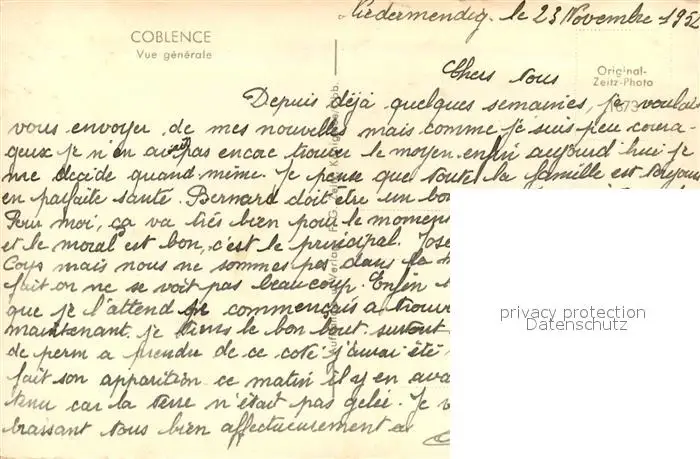 Niedermendig. le 23 Novembre 1952
COBLENCE
Vue générale
Original-
Zeitz-Photo
Chers tous
Depuis déjà quelques semaines, je voulais
vous envoyer de mes nouvelles mais comme je suis peu coura-
geux je n'en avais pas encore trouver le moyen enfin aujourd'hui je
me décide quand même. Je pense que toute la famille est toujours
en parfaite santé. Bernard doit être un bon
Pour moi, ça va très bien pour le moment
et le moral est bon, c'est le principal. José
Coys mais nous ne sommes pas dans la
fait on ne se voit pas beaucoup. Enfin
que je l'attend je commençais a trouve
maintenant je tiens le bon bout surtout
de perm a prendre de ce coté j'aurai été
fait son apparition ce matin il y en ava
tenu car la terre n'était pas gelée. Je v
brassant tous bien affectueusement
privacy protection
Datenschutz